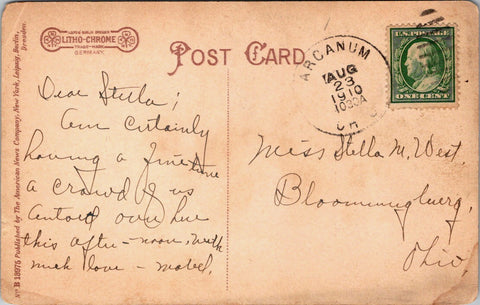 LEIPZIG BERLIN DRESDEN
LITHO-CHROME
TRADE-MARK
GERMANY.
POST CARD
ARCANUM
AUG
23
1910
1030A
OHIO
ONE CENT
Dear Stella;
Am Certainly
having a fine time
a crowd of us
autoed over here
this after-noon, with
much love - mabel.
Miss Stella M. West.
Bloomingburg,
Ohio.
No B 13975 Published by The American News Company, New York, Leipzig, Berlin,
Dresden.